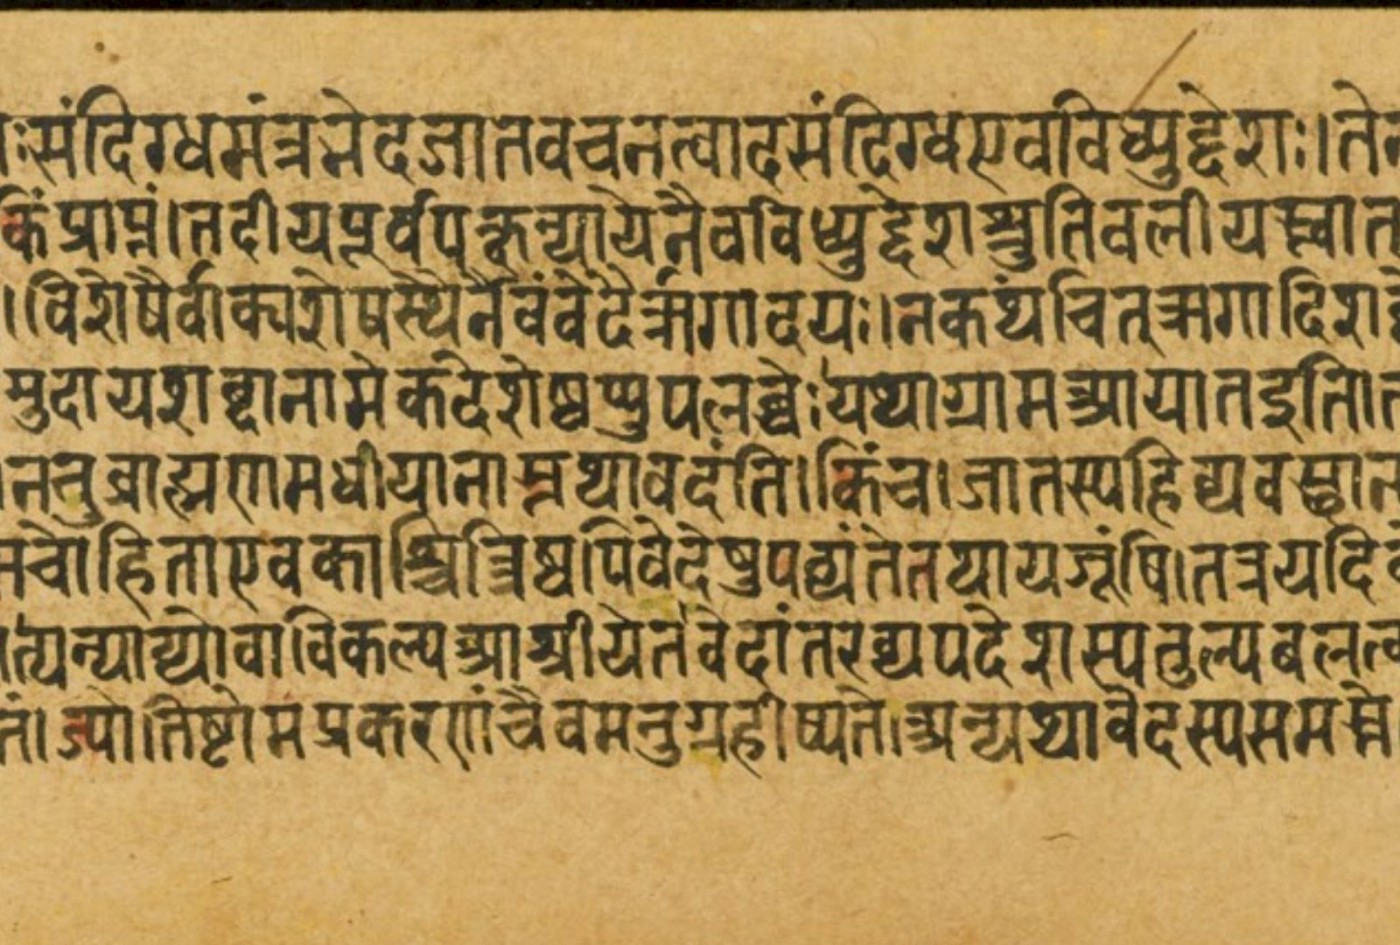 ःसंदिग्धमंत्रभेदजातवचनत्वादसंदिग्धएवविध्युद्देशः।ते
किंप्राप्तं।तदीयपूर्वपक्षन्यायेनैवविध्युद्देशश्रुतिवलीयस्त्वात
।विशेषैर्वाक्यशेषस्थैर्नैवंवेदैर्ऋगादयः।नकथंचित्ऋगादिश
मुदायशब्दानामेकदेशेष्वप्युपलब्धेःयथाग्रामआयातइति।
।ननुव्राह्मणमधीयानास्तथावदंति।किंच।जातस्यहिव्यवस्थान
मचोहिताएवकाश्चित्रिष्वपिवेदेषुपठ्यंतेतथायजूंषि।तत्रयदि
त्यन्याय्योवाविकल्पआश्रीयेतवेदांतरव्यपदेशस्यतुल्यबलत्व
तं।ज्योतिष्टोमप्रकरणंचैवमनुग्रहीष्यते।अन्यथावेदस्यसमस्तो